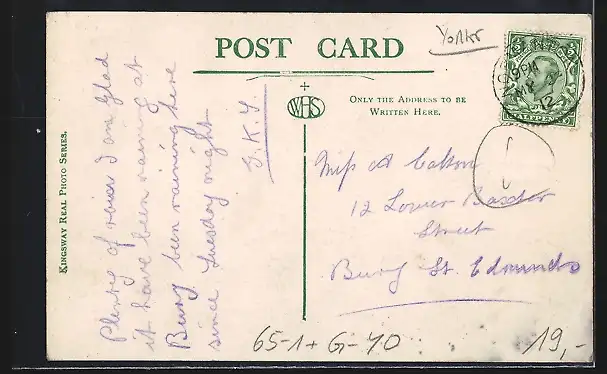 Yorks
POST CARD
WHS
ONLY THE ADDRESS TO BE
WRITTEN HERE.
KINGSWAY REAL PHOTO SERIES.
HALFPENNY
12
Plenty of rain I am glad
it have been raining at
Bury been raining here
since Tuesday night
J. K. Y
Miss A Catton
12 Lower Baxter
Street
Bury St. Edmunds
65-1 + G-40
19,-